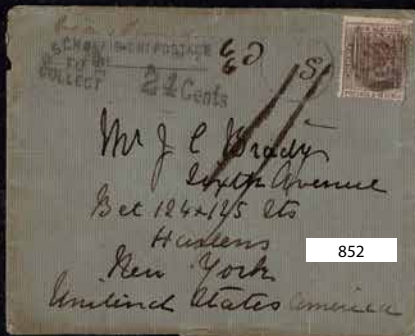 SCHON
TO
COLLECT
POSTAGE
24 Cents
S
Mr J C Brady
Sixth Avenue
Bet 124 & 125 Sts
Harlem
New York
United States America
852